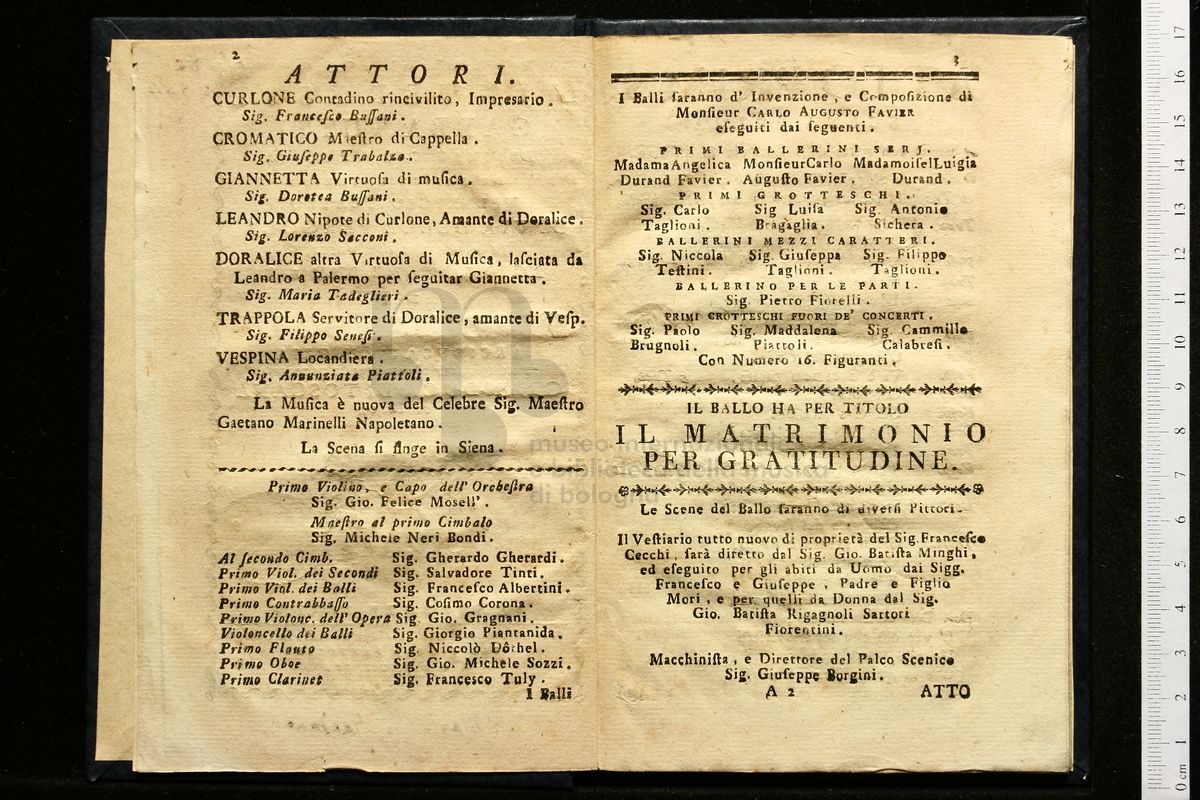 2
ATTORI.
CURLONE Contadino rincivilito, Impresario.
Sig. Francesco Buſſani.
CROMATICO Maeſtro di Cappella.
Sig. Giuſeppe Trabalza.
GIANNETTA Virtuoſa di muſica.
Sig. Dorotea Buſſani.
LEANDRO Nipote di Curlone, Amante di Doralice.
Sig. Lorenzo Sacconi.
DORALICE altra Virtuoſa di Muſica, laſciata da
Leandro a Palermo per ſeguitar Giannetta.
Sig. Maria Tadeglieri.
TRAPPOLA Servitore di Doralice, amante di Veſp.
Sig. Filippo Seneſi.
VESPINA Locandiera.
Sig. Annunziata Piattoli.
La Muſica è nuova del Celebre Sig. Maeſtro
Gaetano Marinelli Napoletano.
La Scena ſi finge in Siena.
Primo Violino, e Capo dell' Orcheſtra
Sig. Gio. Felice Mosell'.
Maeſtro al primo Cimbalo
Sig. Michele Neri Bondi.
Al ſecondo Cimb. Sig. Gherardo Gherardi.
Primo Viol. dei Secondi Sig. Salvadore Tinti.
Primo Viol. dei Balli Sig. Franceſco Albertini.
Primo Contrabbaſſo Sig. Coſimo Corona.
Primo Violonc. dell' Opera Sig. Gio. Gragnani.
Violoncello dei Balli Sig. Giorgio Piantanida.
Primo Flauto Sig. Niccolò Dôthel.
Primo Oboe Sig. Gio. Michele Sozzi.
Primo Clarinet Sig. Franceſco Tuly.
I Balli
3
I Balli ſaranno d' Invenzione, e Compoſizione di
Monſieur CARLO AUGUSTO FAVIER
eſeguiti dai ſeguenti.
PRIMI BALLERINI SERJ.
Madama Angelica Monſieur Carlo Madamoiſel Luigia
Durand Favier. Auguſto Favier. Durand.
PRIMI GROTTESCHI.
Sig. Carlo Sig Luiſa Sig. Antonio
Taglioni. Bragaglia. Sichera.
BALLERINI MEZZI CARATTERI.
Sig. Niccola Sig. Giuſeppa Sig. Filippo
Teſtini. Taglioni. Taglioni.
BALLERINO PER LE PARTI.
Sig. Pietro Fiorelli.
PRIMI GROTTESCHI FUORI DE' CONCERTI.
Sig. Paolo Sig. Maddalena Sig. Cammillo
Brugnoli. Piattoli. Calabreſi.
Con Numero 16. Figuranti.
IL BALLO HA PER TITOLO
IL MATRIMONIO
PER GRATITUDINE.
Le Scene del Ballo ſaranno di diverſi Pittori.
Il Veſtiario tutto nuovo di proprietà del Sig. Franceſco
Cecchi, ſarà diretto dal Sig. Gio. Batiſta Minghi,
ed eſeguito per gli abiti da Uomo dai Sigg.
Franceſco e Giuſeppe, Padre e Figlio
Mori, e per quelli da Donna dal Sig.
Gio. Batiſta Rigagnoli Sartori
Fiorentini.
Macchiniſta, e Direttore del Palco Scenico
Sig. Giuſeppe Borgini.
A 2 ATTO
0 cm 1 2 3 4 5 6 7 8 9 10 11 12 13 14 15 16 17